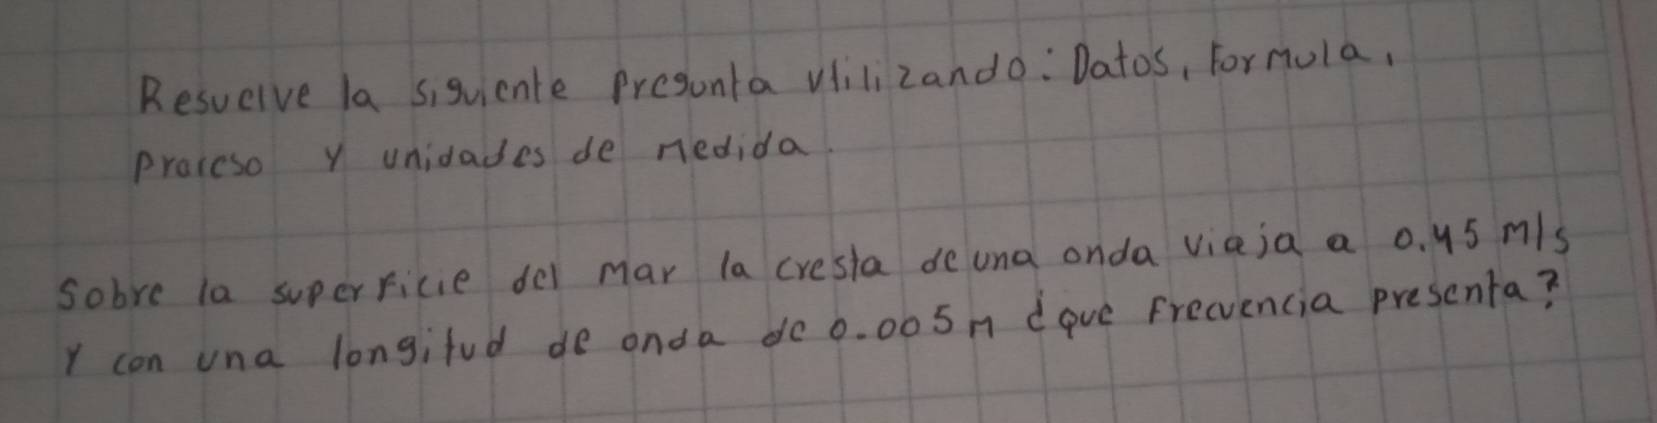 Resuelve la siguiente Pregunta utilizando: Datos, Formula,
Proceso y unidades de medida.
Sobre la superficie del mar la cresta de una onda viaja a 0.45 m/s
y con una longitud de onda de 0.005m ¿que Frecuencia presenta?